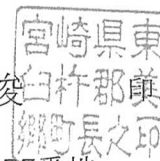 宮崎県東
俊 臼杵郡美
郷町長之印
番地